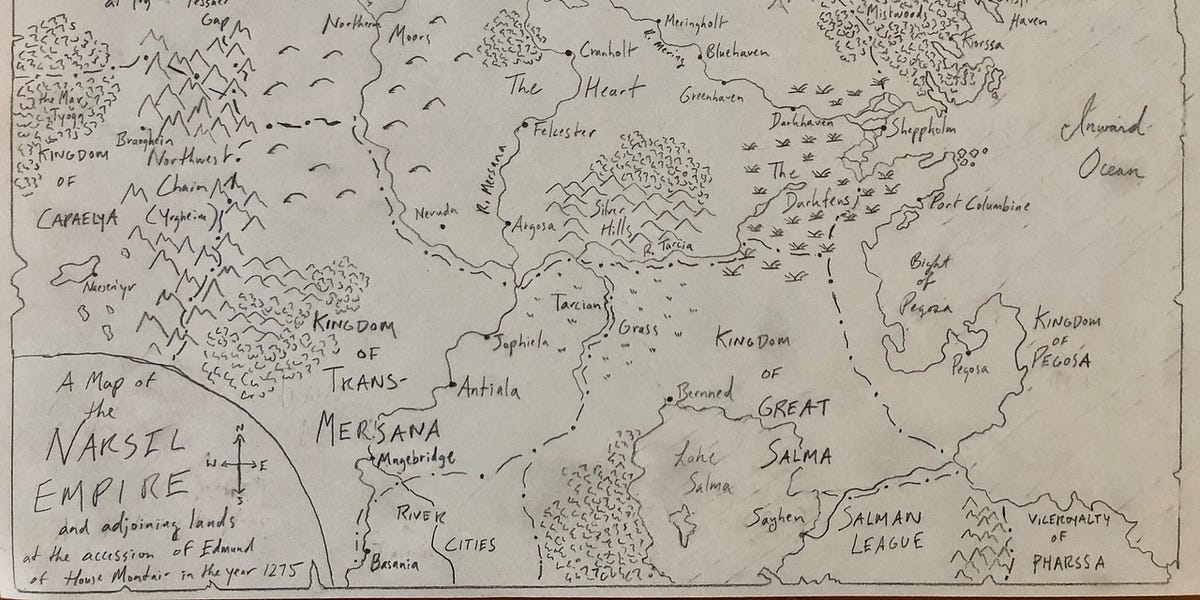 Gap
Northern
Moors
Meringholt
R. Mering
Mistwoods
Haven
Kiorssa
Cranholt
Bluehaven
The Heart
Greenhaven
Inward
Ocean
Darkhaven
Sheppholm
Felcester
KINGDOM
OF
CAPAELYA
Northwest
Chain
(Yrgheim)
R. Mersana
The
Darkfens
Port Columbine
Neruda
Argosa
Silver
Hills
R. Tarcia
Bight
of
Pegosa
Tarcian
Grass
KINGDOM
OF
TRANS-
MERSANA
Jophiela
Antiala
KINGDOM
OF
GREAT
SALMA
Pegosa
KINGDOM
OF
PEGOSA
Bernned
Lake
Salma
Magebridge
RIVER
CITIES
Basania
Sayhen
SALMAN
LEAGUE
VICEROYALTY
OF
PHARSSA
A Map of
the
NARSIL
EMPIRE
and adjoining lands
at the accession of Edmund
of House Montair in the year 1275
N
W E
S